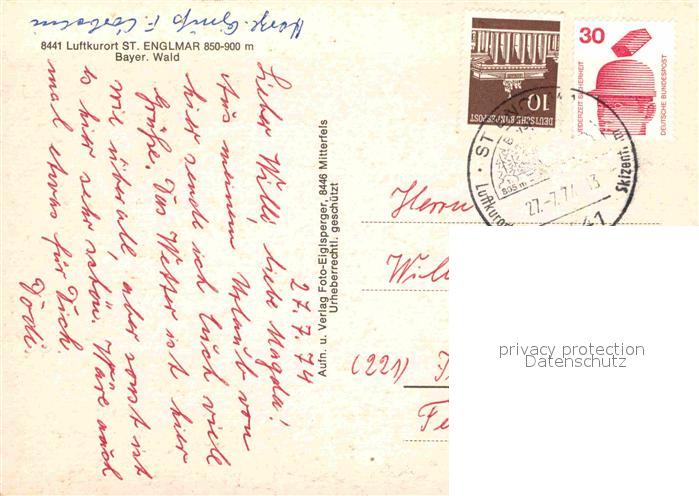 Herzl. Grüße F.
8441 Luftkurort ST. ENGLMAR 850-900 m
Bayer. Wald
27.7.74
Lieber Willi, liebe Magda!
Aus meinem Urlaub von
hier sende ich Euch viele
Grüße. Das Wetter ist hier
wie überall, aber sonst ist
es hier sehr schön. Wäre auch
mal etwas für Dich.
Dodi.
Aufn. u. Verlag Foto-Eiglsperger, 8446 Mitterfels
Urheberrechtl. geschützt
10
DEUTSCHE BUNDESPOST
30
JEDERZEIT SICHERHEIT
DEUTSCHE BUNDESPOST
ST
805 m
27.-7.74
13
Luftkurort
Skizent
Herrn
Wil
(221)
Fe
privacy protection
Datenschutz